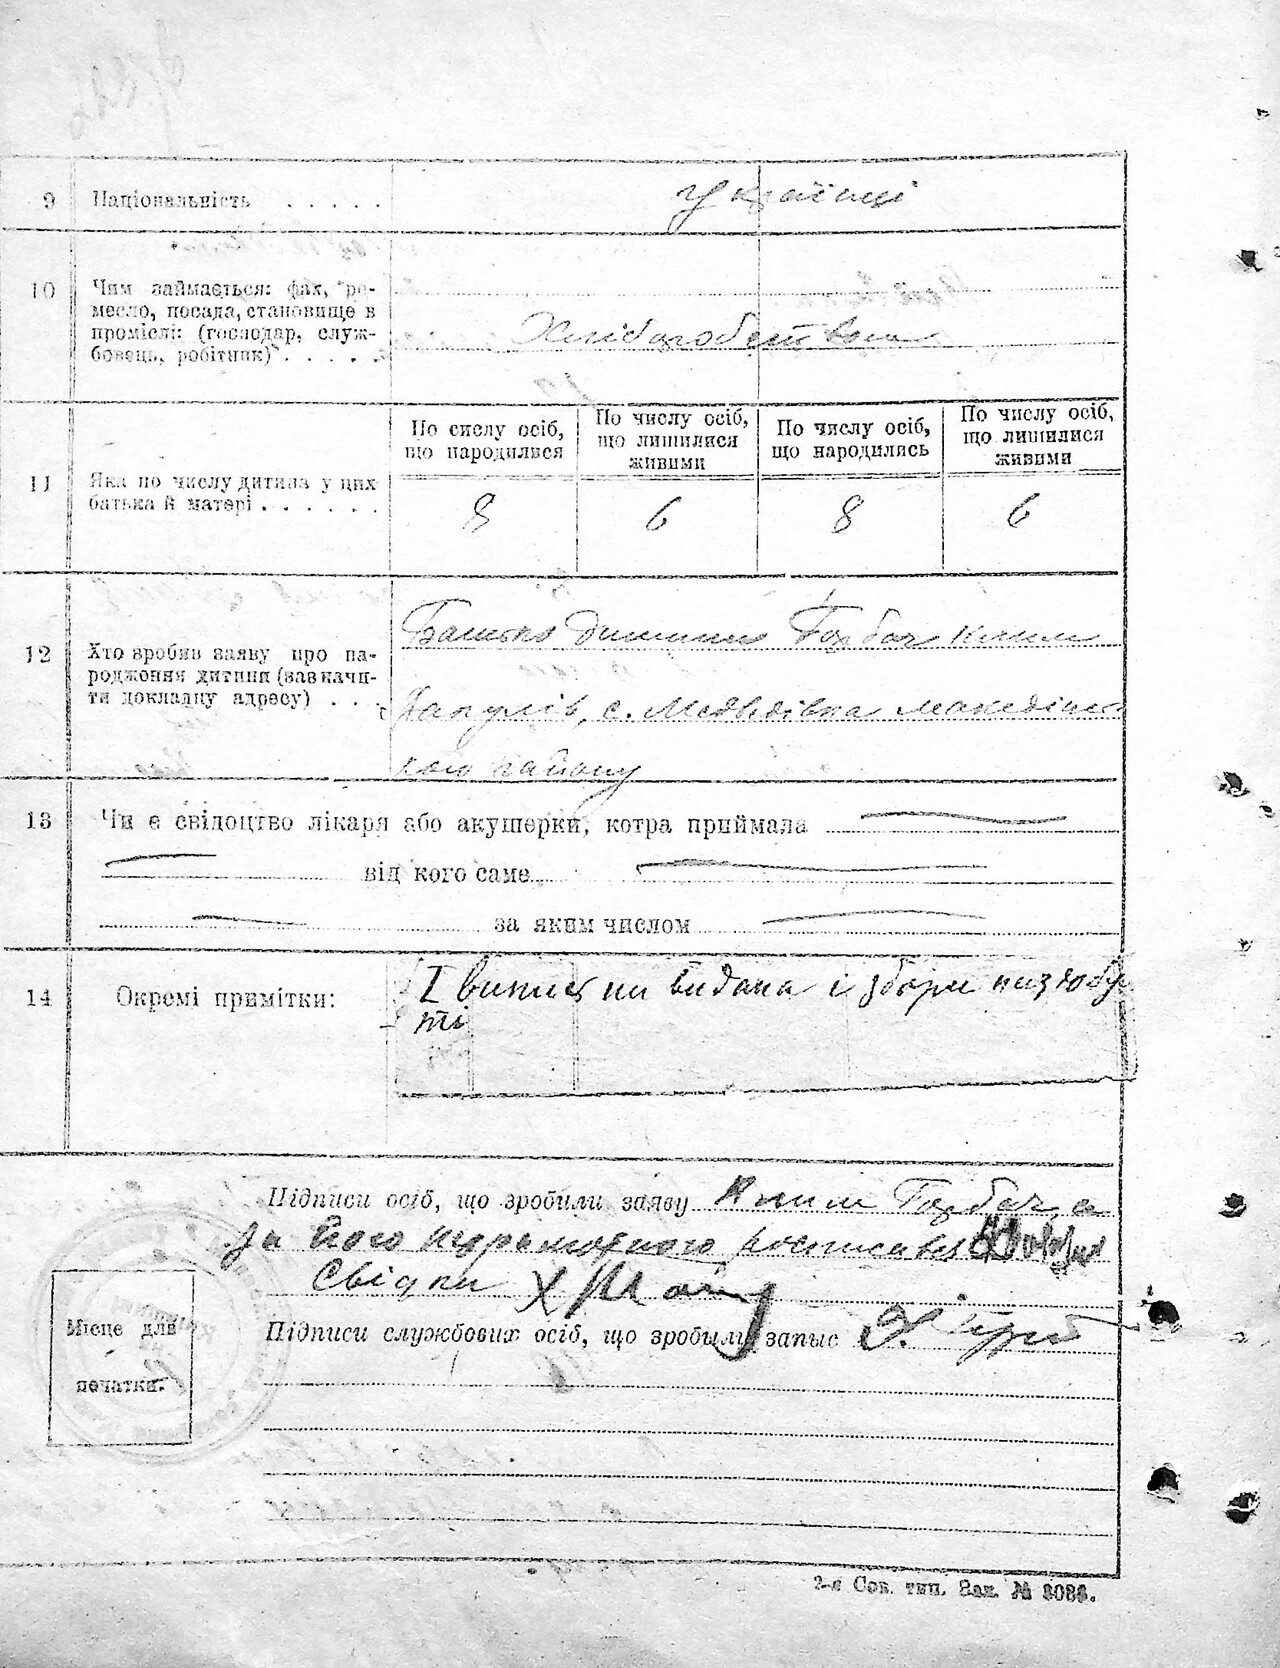 9 Національність . . . . . українці
10 Чим займається: фах, ре-
месло, посада, становище в
промислі: (господар, служ-
бовець, робітник) . . . . . Хліборобством
По числу осіб, що народилися
По числу осіб, що лишилися живими
По числу осіб, що народились
По числу осіб, що лишилися живими
11 Яка по числу дитина у цих
батька й матері . . . . . . 8 6 8 6
12 Хто зробив заяву про на-
родження дитини (зазначи-
ти докладну адресу) . . .
Батько дитини Горбач Клим
с. Медведівка
кого району
13 Чи є свідоцтво лікаря або акушерки, котра приймала
від кого саме
за яким числом
14 Окремі примітки:
І випись не видана і збори
Підписи осіб, що зробили заяву Клим Горбач, а
за його неграмотного росписався
Свідки
Підписи службових осіб, що зробили запис
Місце для
печатки.
2-а Сов. тип. Зак. № 3086.